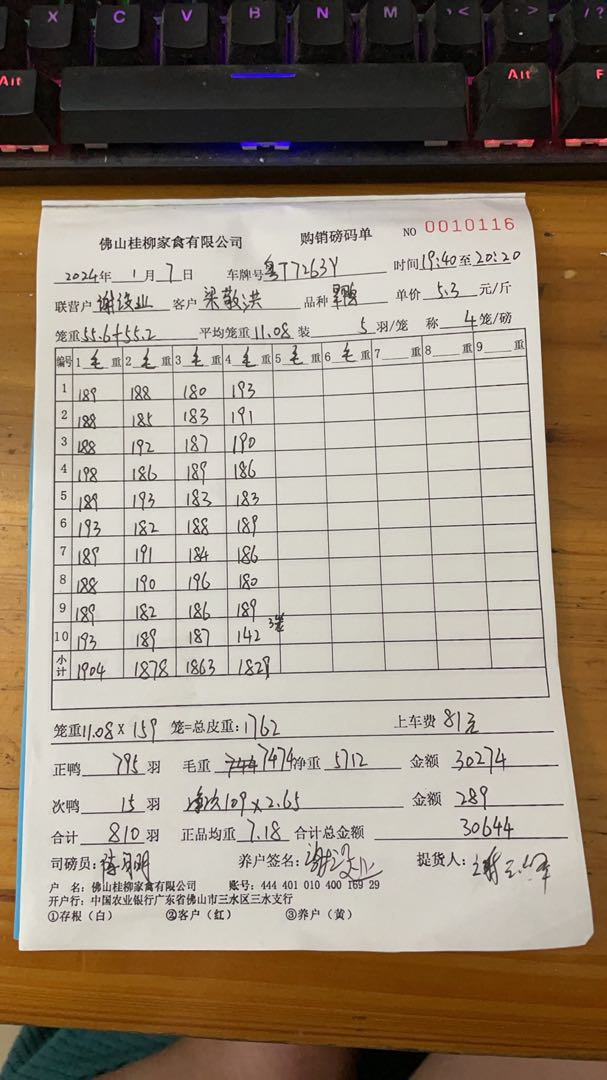 X C V B N M
Alt Alt F
佛山桂柳家禽有限公司 购销磅码单 NO 0010116
2024年 1月7日 车牌号粤T7263Y 时间19:40至20:20
联营户 业 客户 梁敬洪 品种 单价 5.3 元/斤
笼重55.6+55.2 平均笼重11.08 装 5 羽/笼 称 4笼/磅
编号 1毛重 2毛重 3毛重 4毛重 5毛重 6毛重 7重 8重 9重
1 189 188 180 193
2 188 185 183 191
3 188 192 187 190
4 198 186 189 186
5 189 193 183 183
6 193 182 188 189
7 189 191 184 186
8 188 190 196 180
9 189 182 186 189
10 193 189 187 142 3笼
小计 1904 1878 1863 1829
笼重11.08×159 笼=总皮重:1762 上车费 81元
正鸭 795 羽 毛重 7474 净重 5712 金额 30274
次鸭 15 羽 109×2.65 金额 289
合计 810 羽 正品均重 7.18 合计总金额 30644
司磅员: 养户签名: 提货人:
户 名: 佛山桂柳家禽有限公司 账号: 444 401 010 400 169 29
开户行: 中国农业银行广东省佛山市三水区三水支行
①存根(白) ②客户(红) ③养户(黄)